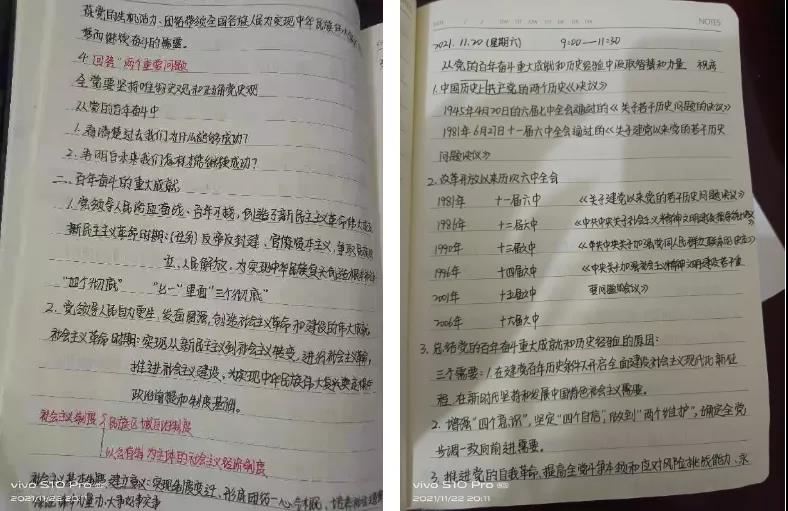 族党的生机活力、团结带领全国各族人民为实现中华民族伟大复兴
梦而继续奋斗的需要。
4. 回答"两个重要问题
全党要坚持唯物史观和正确党史观
从党的百年奋斗中
1. 看清楚过去我们为什么能够成功?
2. 弄明白未来我们怎样才能继续成功?
二、百年奋斗的重大成就
1. 党领导人民浴血奋战、百折不挠,创造了新民主主义革命伟大成就
新民主主义革命时期:(任务)反帝反封建、官僚资本主义,争取民族独
立、人民解放,为实现中华民族复兴创造根本
"四个彻底" "七一"里面"三个彻底"
2. 党领导人民自力更生、发奋图强,创造社会主义革命和建设的伟大成就
社会主义革命时期:实现从新民主主义到社会主义转变,进行社会主义革命,
推进社会主义建设,为实现中华民族伟大复兴奠定根本
政治前提和制度基础。
社会主义制度 民族区域自治制度
以公有制为主体的社会主义经济制度
NOTES
2021.11.20(星期六) 9:00—11:30
从党的百年奋斗重大成就和历史经验中汲取智慧和力量
1. 中国历史上共产党的两个历史《决议》
1945年4月20日的六届七中全会通过的《关于若干历史问题的决议》
1981年6月27日十一届六中全会通过的《关于建党以来党的若干历史
问题决议》
2. 改革开放以来历次六中全会
1981年 十一届六中 《关于建党以来党的若干历史问题决议》
1986年 十二届六中 《中共中央关于社会主义精神文明建设指导方针
1990年 十三届六中 《中共中央关于加强党同人民群众联系的决定》
1996年 十四届六中 《中央关于加强社会主义精神文明建设若干重
2001年 十五届六中 要问题的决议》
2006年 十六届六中
3. 总结党的百年奋斗重大成就和历史经验的原因:
三个需要:1. 在建党百年历史条件下开启全面建设社会主义现代化新征
程,在新时代坚持和发展中国特色社会主义需要。
2. 增强"四个意识",坚定"四个自信",做到"两个维护",确定全党
步调一致向前进需要。
3. 推进党的自我革命,提高全党斗争本领和应对风险挑战能力、永
vivo S10 Pro
2021/11/22 20:11
vivo S10 Pro
2021/11/22 20:11